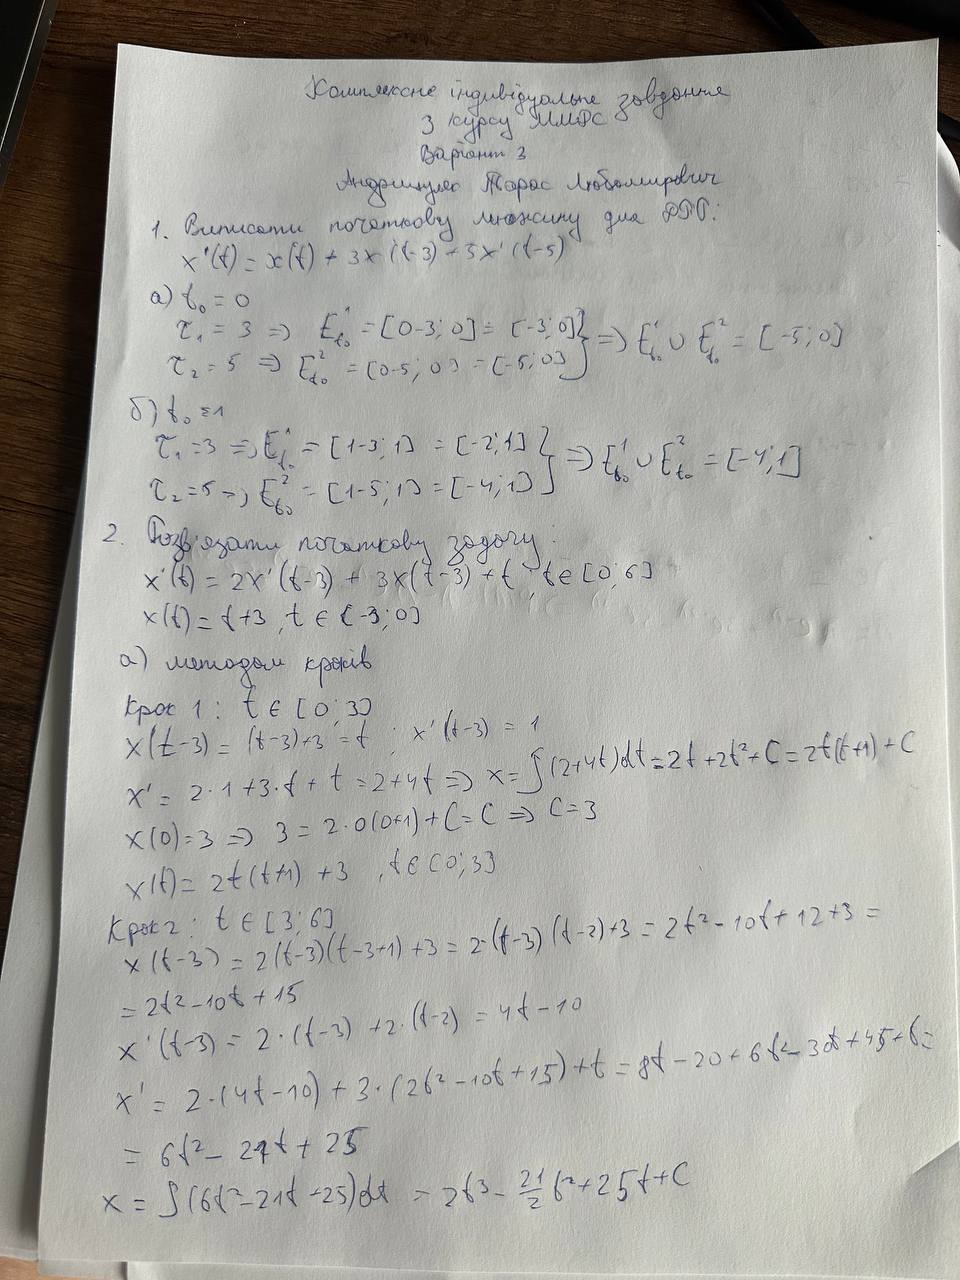 Комплексне індивідуальне завдання
3 курсу ММФС
Варіант 3
Тарас Любомирович
1. Виписати початкову множину для ДРР:
x'(t) = x(t) + 3x'(t-3) - 5x'(t-5)
а) t₀ = 0
τ₁ = 3 => E¹ₜ₀ = [0-3; 0] = [-3; 0] } => E¹ₜ₀ ∪ E²ₜ₀ = [-5; 0]
τ₂ = 5 => E²ₜ₀ = [0-5; 0] = [-5; 0]
б) t₀ = 1
τ₁ = 3 => E¹ₜ₀ = [1-3; 1] = [-2; 1] } => E¹ₜ₀ ∪ E²ₜ₀ = [-4; 1]
τ₂ = 5 => E²ₜ₀ = [1-5; 1] = [-4; 1]
2. Розв'язати початкову задачу:
x'(t) = 2x'(t-3) + 3x(t-3) + t, t ∈ [0; 6]
x(t) = t+3, t ∈ [-3; 0]
а) методом кроків
Крок 1: t ∈ [0; 3]
x(t-3) = (t-3)+3 = t; x'(t-3) = 1
x' = 2·1+3·t + t = 2+4t => x = ∫(2+4t)dt = 2t+2t²+C = 2t(t+1)+C
x(0)=3 => 3 = 2·0(0+1)+C = C => C=3
x(t) = 2t(t+1) + 3, t ∈ [0; 3]
Крок 2: t ∈ [3; 6]
x(t-3) = 2(t-3)(t-3+1)+3 = 2·(t-3)(t-2)+3 = 2t²-10t+12+3 =
= 2t²-10t+15
x'(t-3) = 2·(t-3) + 2·(t-2) = 4t-10
x' = 2·(4t-10) + 3·(2t²-10t+15)+t = 8t-20+6t²-30t+45+t =
= 6t²-21t+25
x = ∫(6t²-21t+25)dt = 2t³ - 21/2 t² + 25t + C